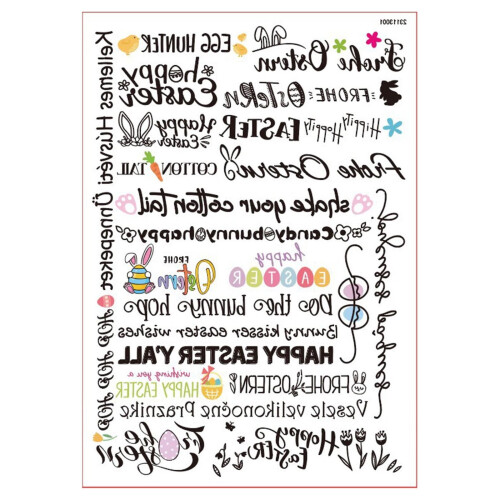 23113001
EGG HUNTER
Frohe Ostern
happy Easter
FROHE OSTERN
Happy Easter
EASTER
HIPPITY HOPPITY
HIPPITY HOPPITY
COTTON TAIL
Frohe Ostern
shake your cotton tail
Candy bunny happy
FROHE Ostern
happy EASTER
Do the bunny hop
Bunny kisser easter wishes
HAPPY EASTER Y'ALL
wishing you a HAPPY EASTER
FROHE OSTERN
Vesele velikonočne Praznike
Frohe Ostern
Happy EASTER
Kellemes Húsvéti Ünnepeket
HOP HOP HOP HOP